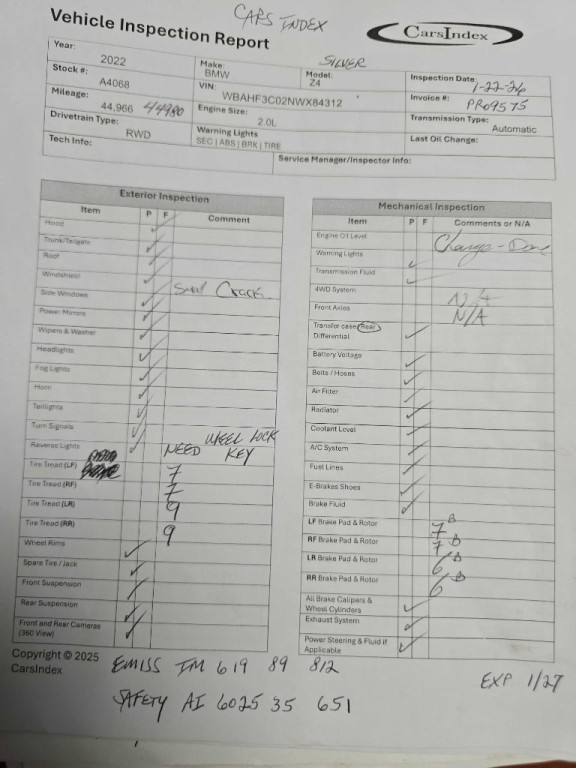 CARS INDEX
Vehicle Inspection Report
CarsIndex
SILVER
Year: 2022
Make: BMW
Model: Z4
Inspection Date: 1-22-26
Stock #: A4068
VIN: WBAHF3C02NWX84312
Invoice #: PRO9575
Mileage: 44,966 44980
Engine Size: 2.0L
Transmission Type: Automatic
Drivetrain Type: RWD
Warning Lights
SEC | ABS | BRK | TIRE
Last Oil Change:
Tech Info:
Service Manager/Inspector Info:
Exterior Inspection
Item P F Comment
Hood
Trunk/Tailgate
Roof
Windshield
Side Windows Small Crack
Power Mirrors
Wipers & Washer
Headlights
Fog Lights
Horn
Taillights
Turn Signals
Reverse Lights NEED WHEEL LOCK KEY
Tire Tread (LF) 7
Tire Tread (RF) 7
Tire Tread (LR) 9
Tire Tread (RR) 9
Wheel Rims
Spare Tire / Jack
Front Suspension
Rear Suspension
Front and Rear Cameras
(360 View)
Mechanical Inspection
Item P F Comments or N/A
Engine Oil Level Change - Done
Warning Lights
Transmission Fluid
4WD System N/A
Front Axles N/A
Transfer case/Rear
Differential
Battery Voltage
Belts / Hoses
Air Filter
Radiator
Coolant Level
A/C System
Fuel Lines
E-Brakes Shoes
Brake Fluid
LF Brake Pad & Rotor 7
RF Brake Pad & Rotor 7
LR Brake Pad & Rotor 6
RR Brake Pad & Rotor 6
All Brake Calipers &
Wheel Cylinders
Exhaust System
Power Steering & Fluid if
Applicable
Copyright © 2025
CarsIndex
EMISS IM 619 89 812
EXP 1/27
SAFETY AI 6025 35 651